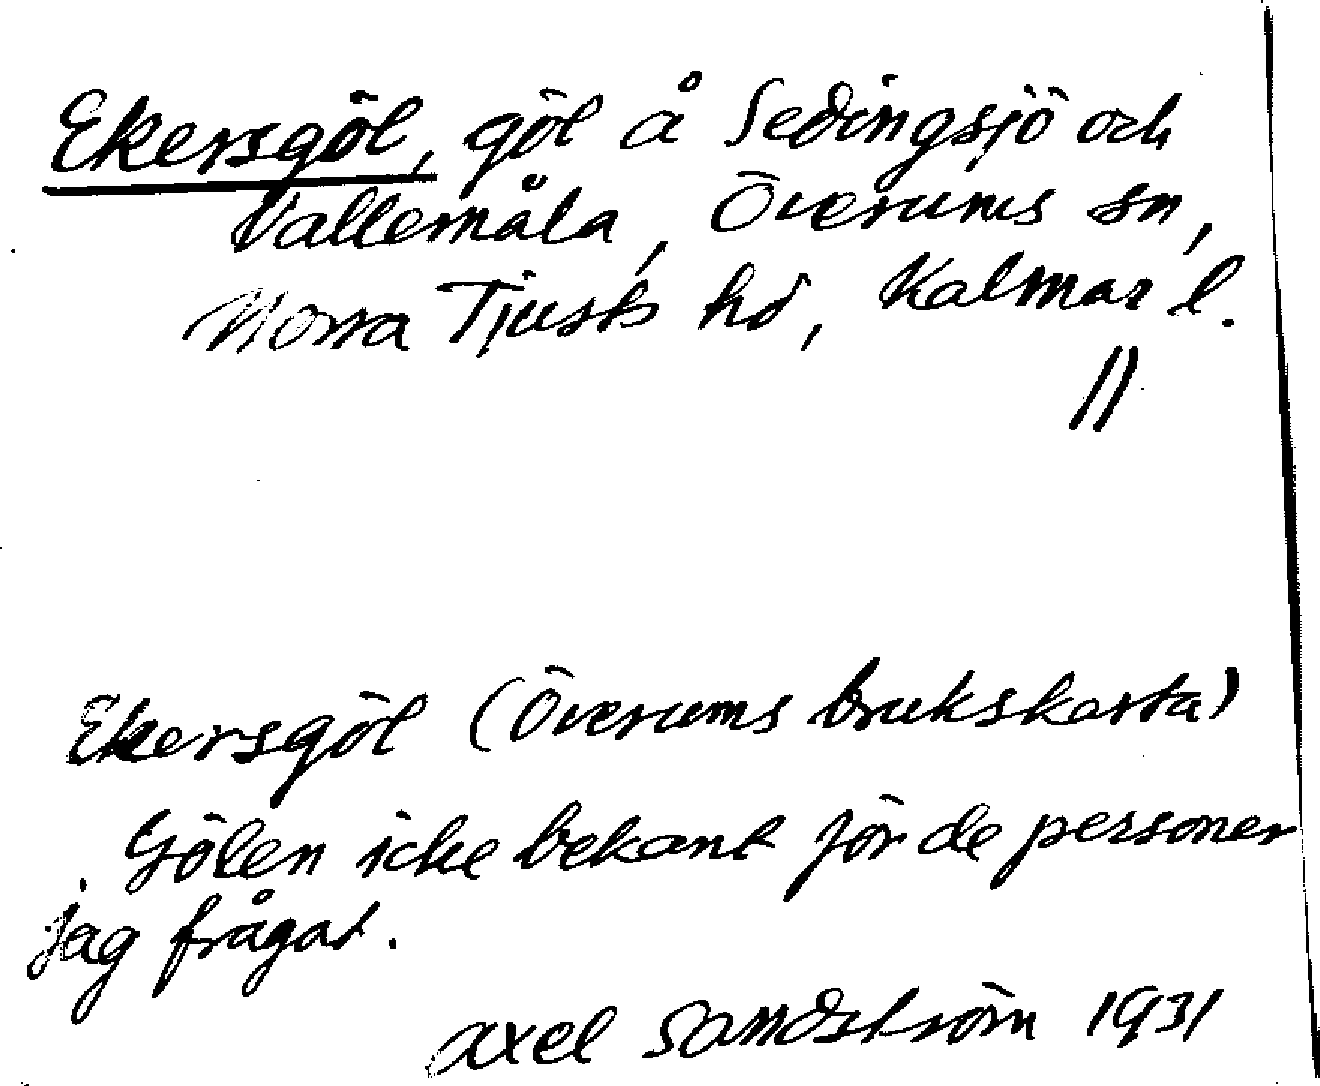 Ekersgöl, göl å Sedingsjö och
Vallemåla, Överums sn,
Norra Tjusts hd, Kalmar l.
Ekersgöl (Överums brukskarta)
Gölen icke bekant för de personer
jag frågat.
Axel Sandström 1931